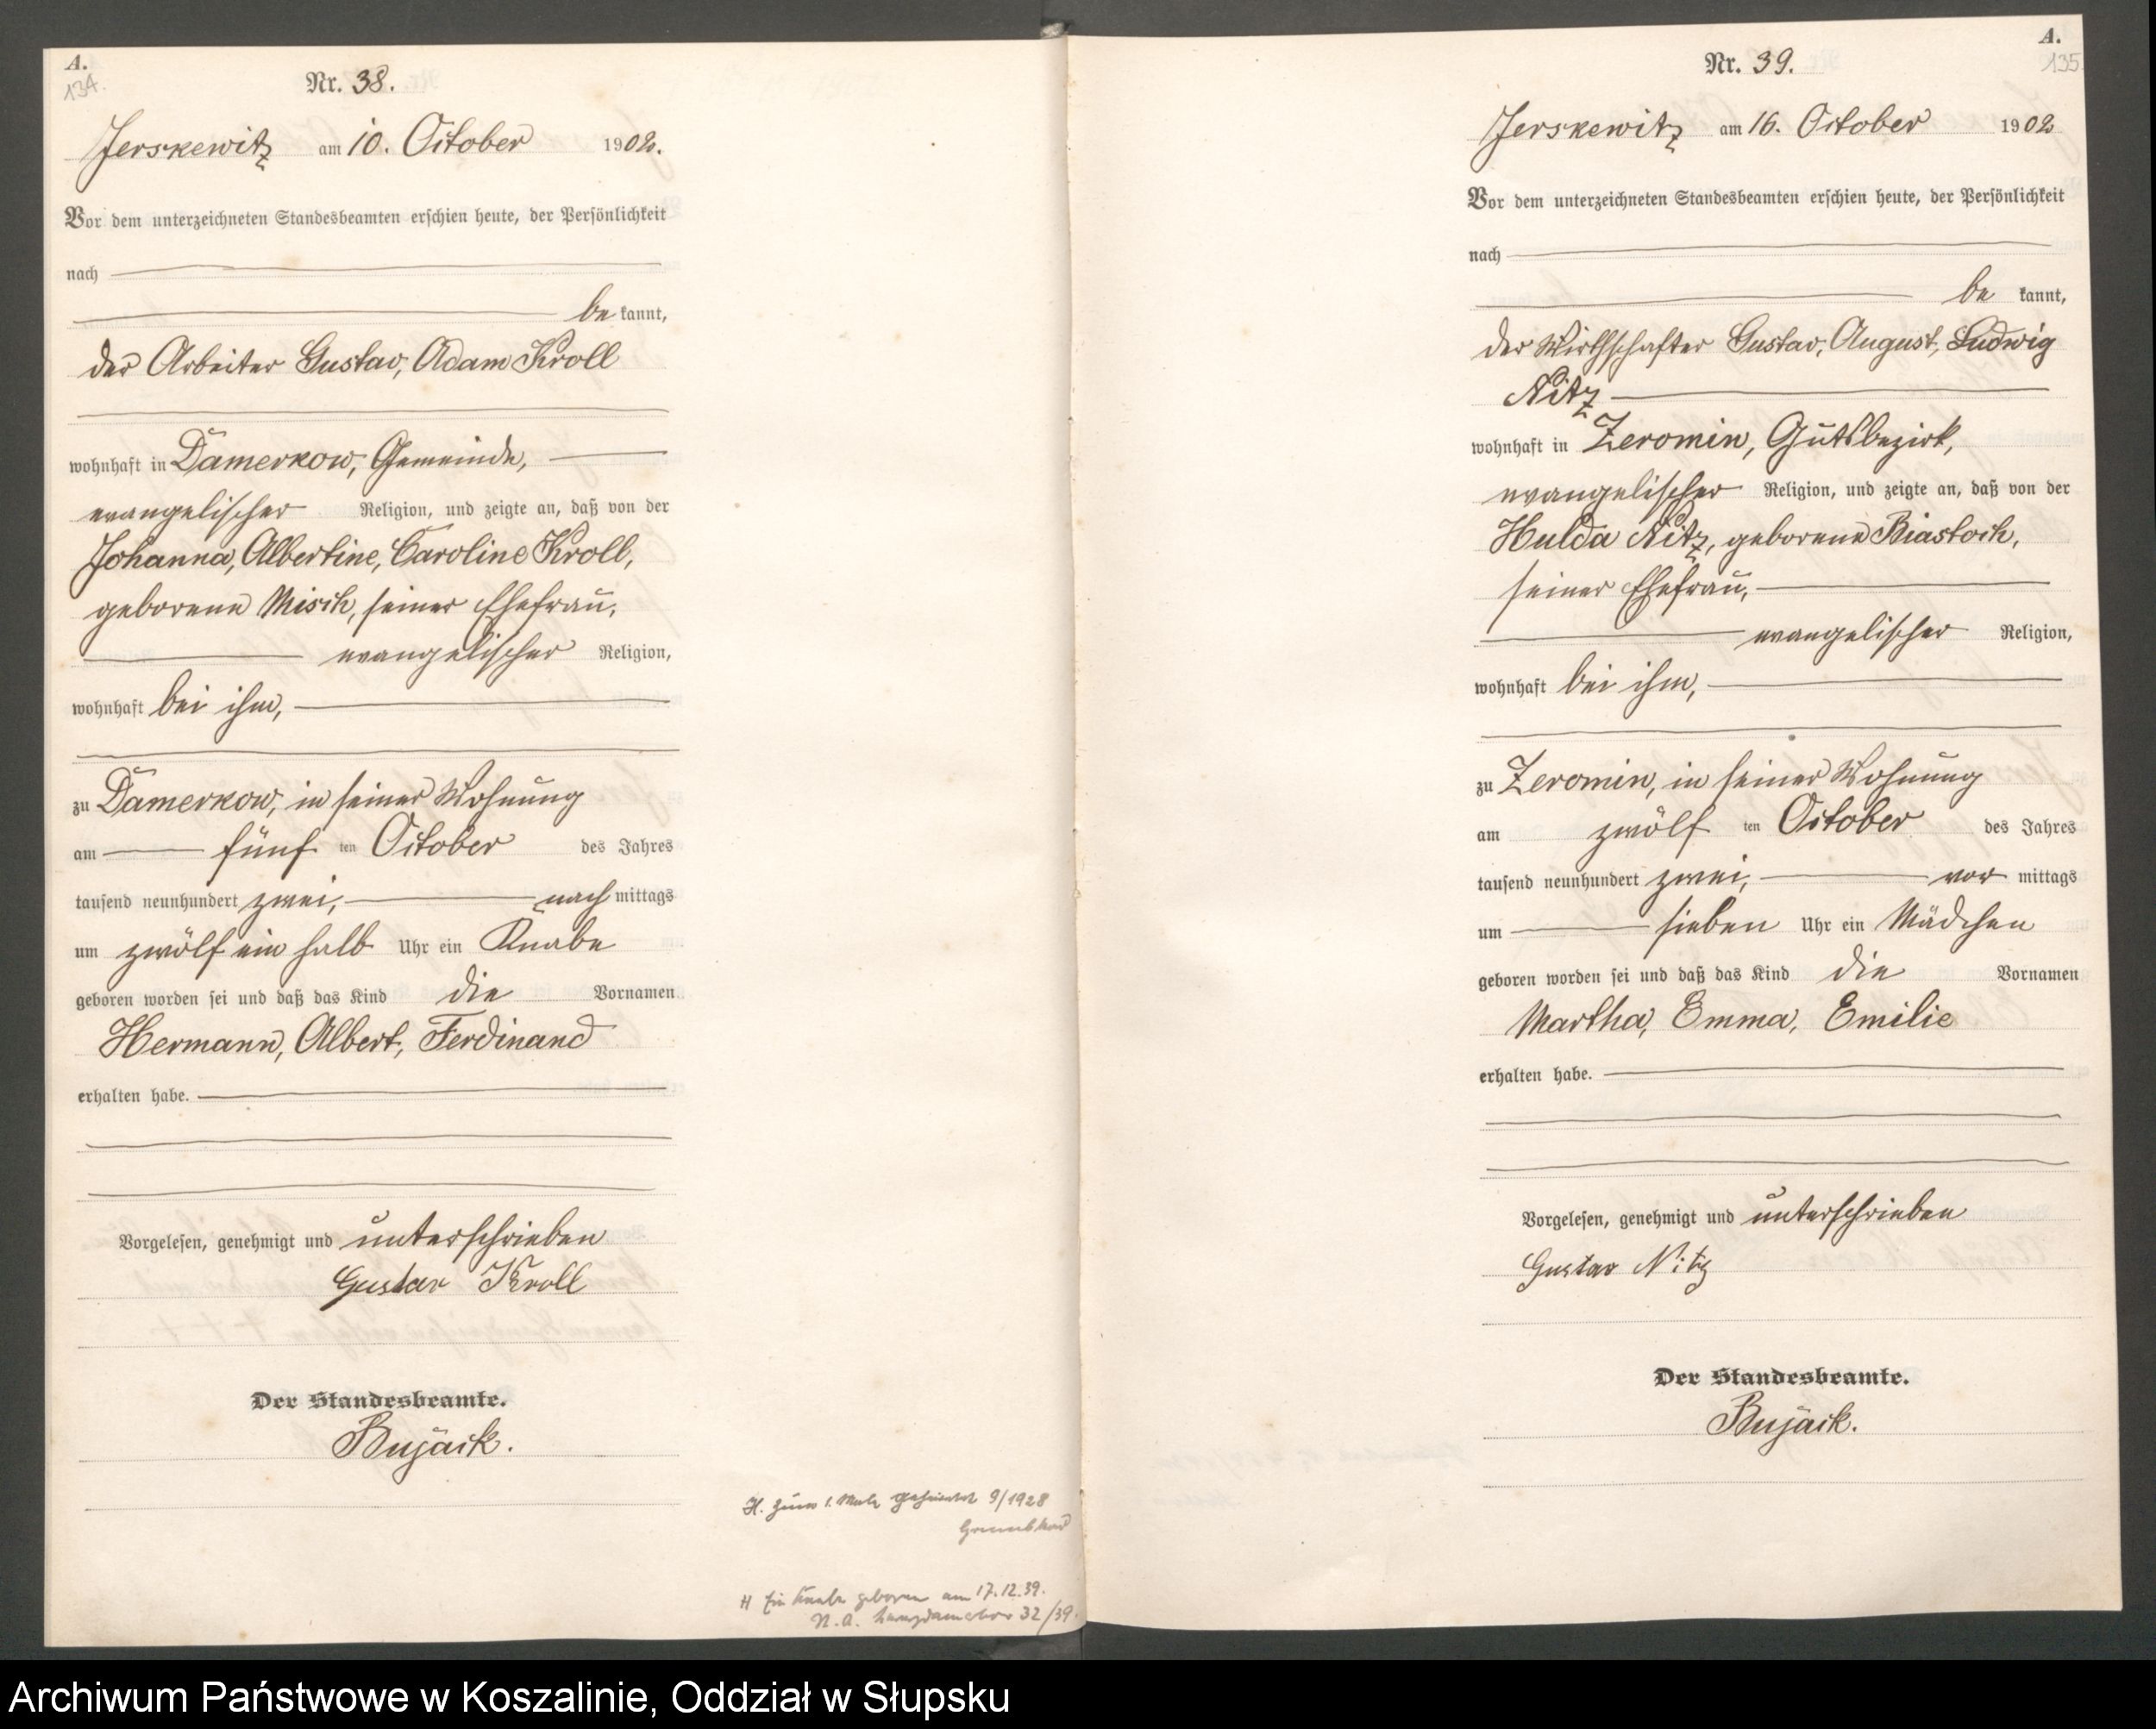 A.
134.
Nr. 38.
Jerskewitz am 10. October 1902.
Vor dem unterzeichneten Standesbeamten erschien heute, der Persönlichkeit
nach
be kannt,
der Arbeiter Gustav, Adam Kroll
wohnhaft in Damerkow, Gemeinde,
evangelischer Religion, und zeigte an, daß von der
Johanna, Albertine, Caroline Kroll,
geborene Misch, seiner Ehefrau,
evangelischer Religion,
wohnhaft bei ihm,
zu Damerkow, in seiner Wohnung
am fünf ten October des Jahres
tausend neunhundert zwei, nach mittags
um zwölf ein halb Uhr ein Knabe
geboren worden sei und daß das Kind die Vornamen
Hermann, Albert, Ferdinand
erhalten habe.
Vorgelesen, genehmigt und unterschrieben
Gustav Kroll
Der Standesbeamte.
Bujack.
H. zum 1. Male geheiratet 9/1928
H Ein Knabe geboren am 17.12.39.
32/39.
A.
135
Nr. 39.
Jerskewitz am 16. October 1902
Vor dem unterzeichneten Standesbeamten erschien heute, der Persönlichkeit
nach
be kannt,
der Wirthschafter Gustav, August, Ludwig
Nitz
wohnhaft in Zeromin, Gutsbezirk,
evangelischer Religion, und zeigte an, daß von der
Hulda Nitz, geborene Biastoch,
seiner Ehefrau,
evangelischer Religion,
wohnhaft bei ihm,
zu Zeromin, in seiner Wohnung
am zwölf ten October des Jahres
tausend neunhundert zwei, vor mittags
um sieben Uhr ein Mädchen
geboren worden sei und daß das Kind die Vornamen
Martha, Emma, Emilie
erhalten habe.
Vorgelesen, genehmigt und unterschrieben
Gustav Nitz
Der Standesbeamte.
Bujack.
Archiwum Państwowe w Koszalinie, Oddział w Słupsku